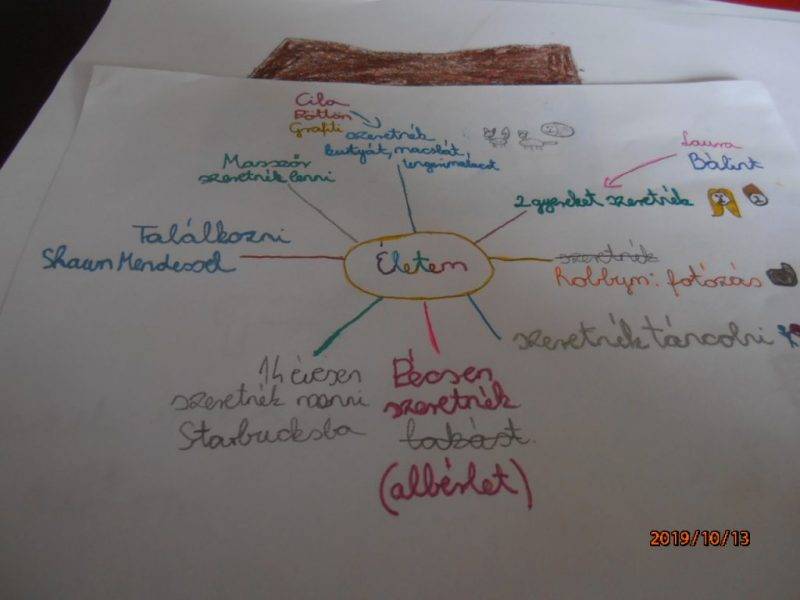 Cila
Botton
Grafiti
szeretnék
kutyát, macskát,
tengerimalacot
Masszőr
szeretnék lenni
Laura
Bálint
2 gyereket szeretnék
Találkozni
Shawn Mendesel
Életem
szeretnék
hobbym: fotózás
szeretnék táncolni
14 évesen
szeretnék menni
Starbucksba
Pécsen
szeretnék
lakást
(albérlet)
2019/10/13